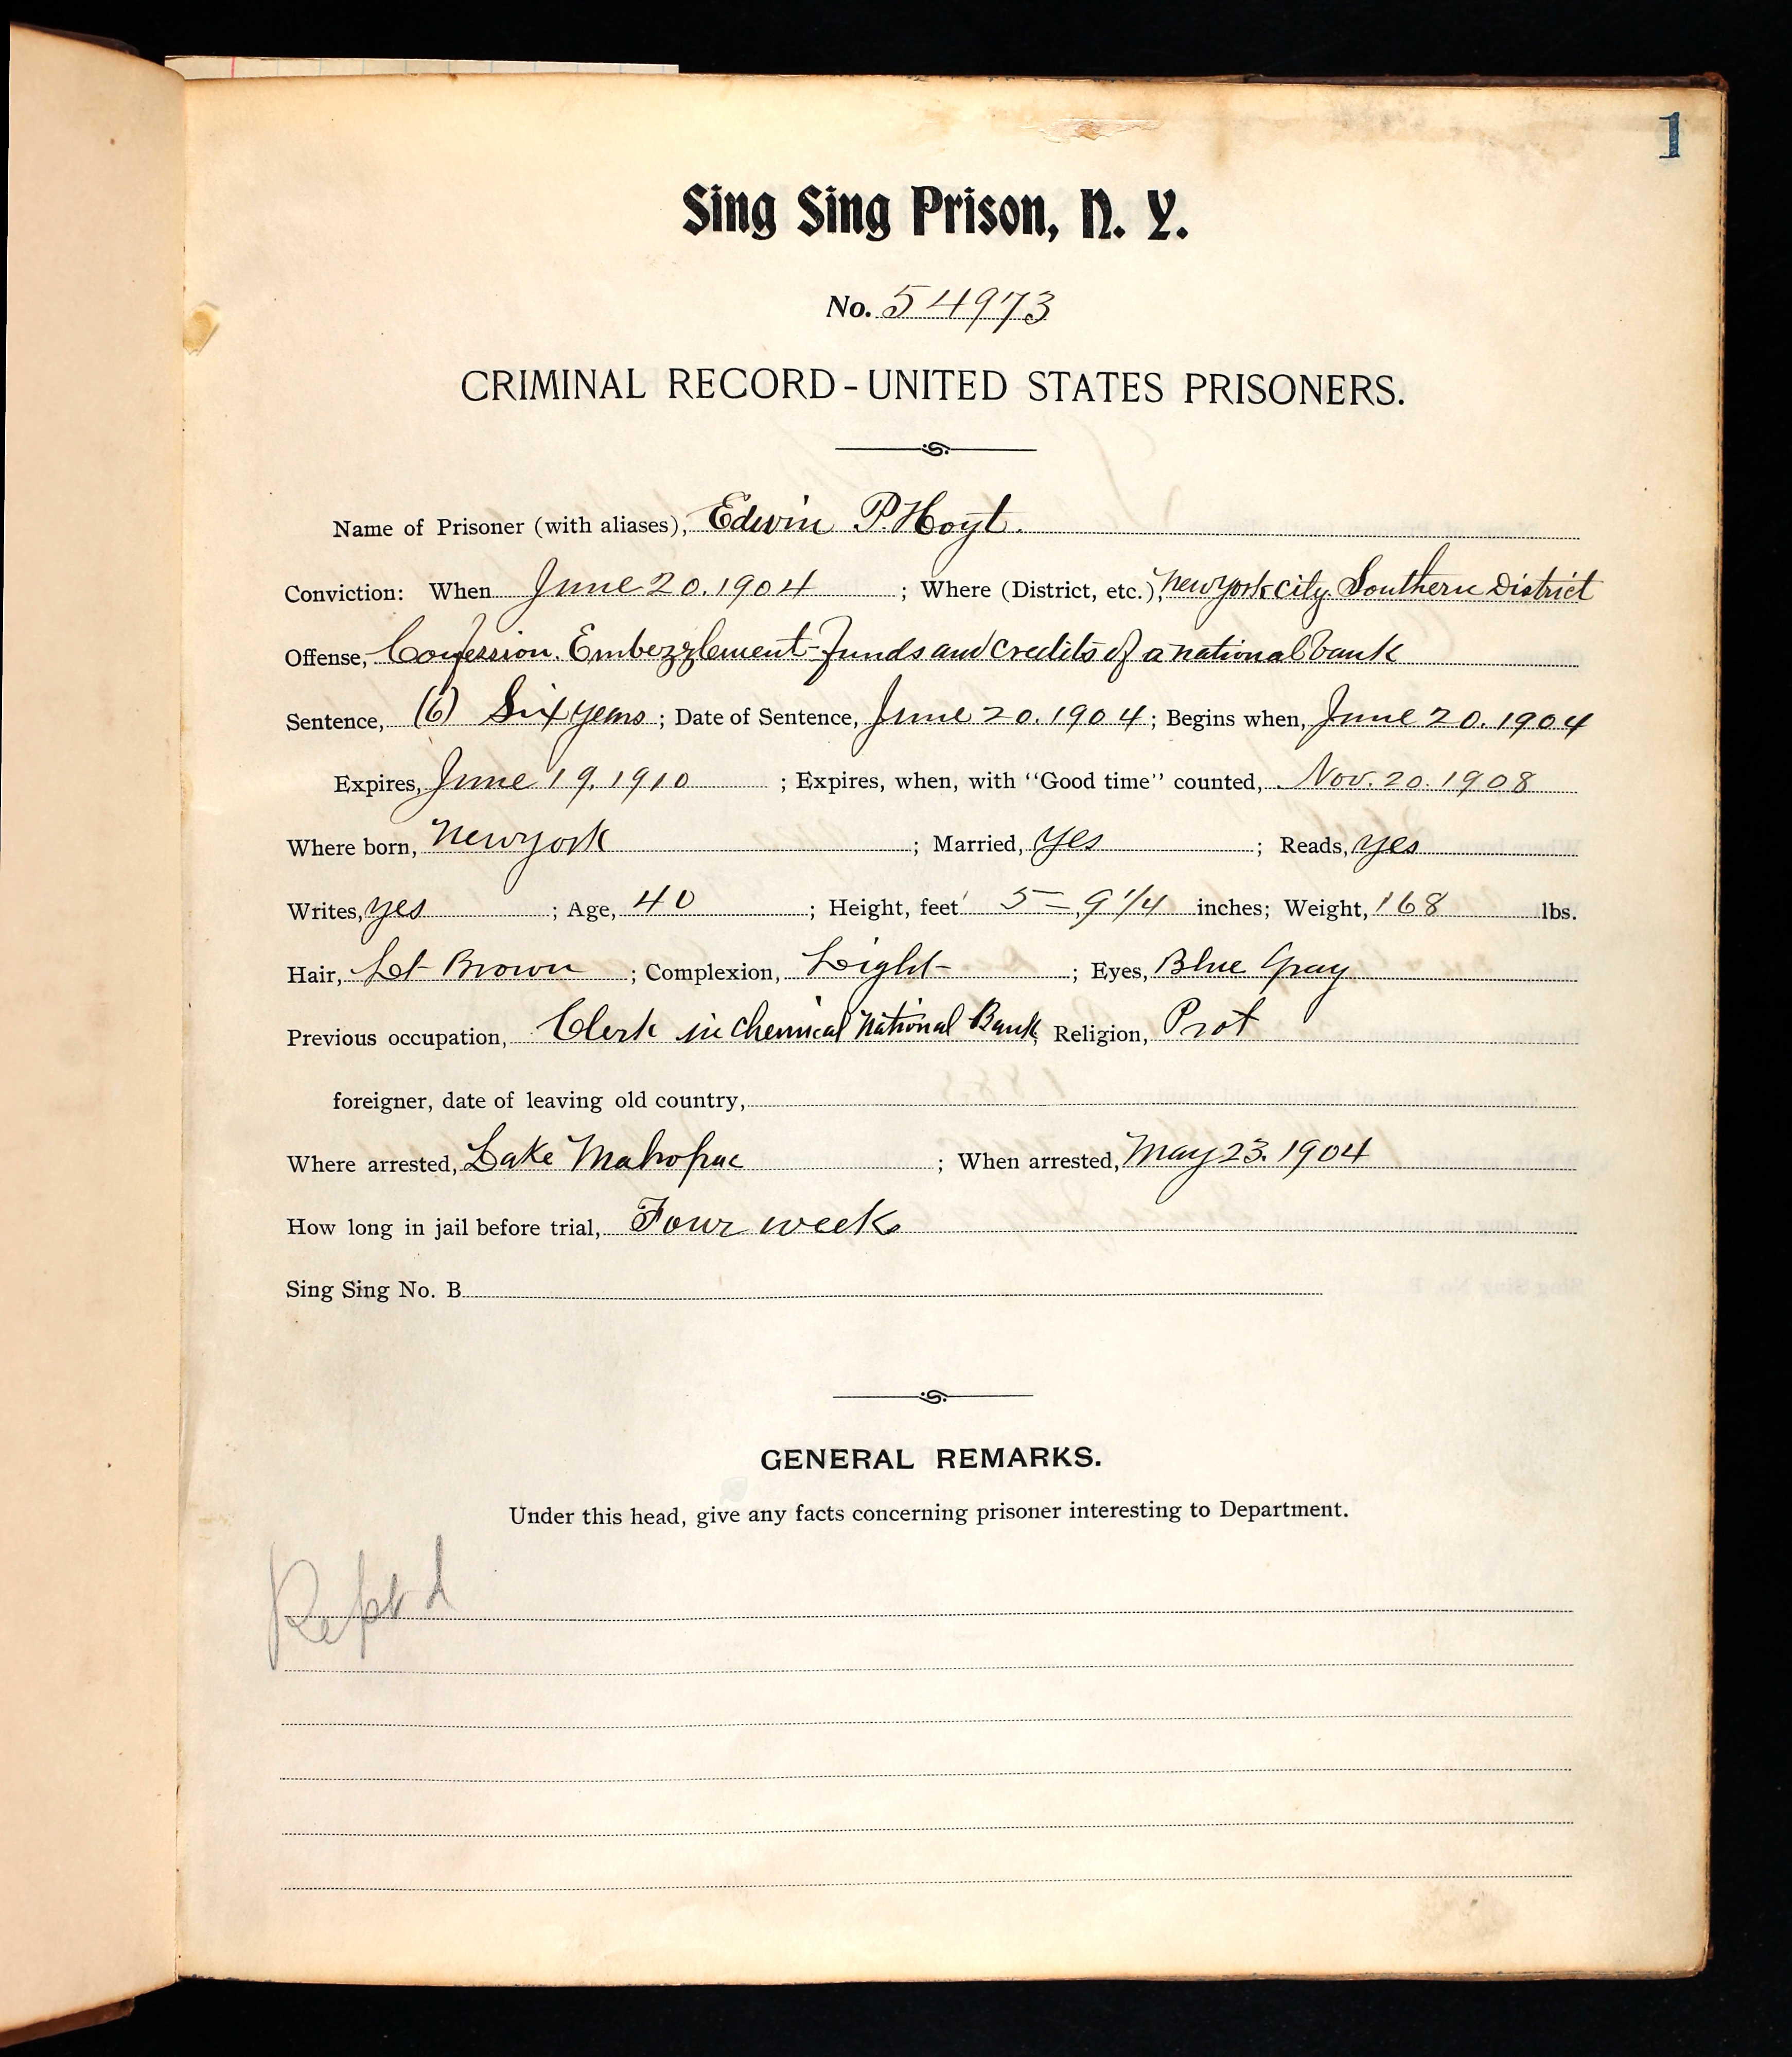 1
Sing Sing Prison, N. Y.
No. 54973
CRIMINAL RECORD - UNITED STATES PRISONERS.
Name of Prisoner (with aliases), Edwin P. Hoyt.
Conviction: When June 20. 1904 ; Where (District, etc.), New york city. Southern District
Offense, Confession. Embezzlement - funds and credits of a national bank
Sentence, (6) Six years ; Date of Sentence, June 20. 1904 ; Begins when, June 20. 1904
Expires, June 19. 1910 ; Expires, when, with "Good time" counted, Nov. 20. 1908
Where born, New york ; Married, yes ; Reads, yes
Writes, yes ; Age, 40 ; Height, feet 5 - 9 1/4 inches; Weight, 168 lbs.
Hair, Lt Brown ; Complexion, Light ; Eyes, Blue Gray
Previous occupation, Clerk in Chemical National Bank ; Religion, Prot
foreigner, date of leaving old country,
Where arrested, Lake Mahopac ; When arrested, May 23. 1904
How long in jail before trial, Four weeks
Sing Sing No. B
GENERAL REMARKS.
Under this head, give any facts concerning prisoner interesting to Department.
Rept d